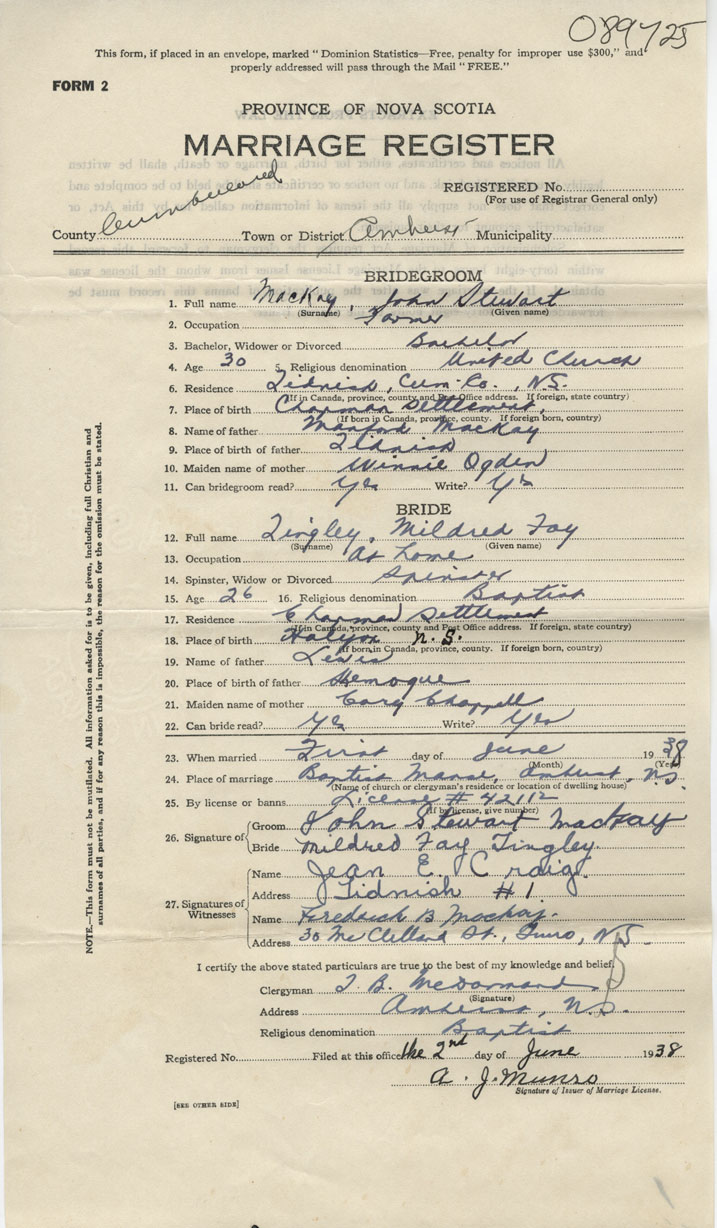 089725
This form, if placed in an envelope, marked "Dominion Statistics—Free, penalty for improper use $300," and
properly addressed will pass through the Mail "FREE."
FORM 2
PROVINCE OF NOVA SCOTIA
MARRIAGE REGISTER
REGISTERED No.
(For use of Registrar General only)
County Cumberland Town or District Amherst Municipality
BRIDEGROOM
1. Full name MacKay, John Stewart
(Surname) (Given name)
2. Occupation Farmer
3. Bachelor, Widower or Divorced Bachelor
4. Age 30 5. Religious denomination United Church
6. Residence Tidnish, Cum. Co., N.S.
(If in Canada, province, county and Post Office address. If foreign, state country)
7. Place of birth Chapman Settlement,
(If born in Canada, province, county. If foreign born, country)
8. Name of father Manford MacKay
9. Place of birth of father Tidnish
10. Maiden name of mother Winnie Ogden
11. Can bridegroom read? Yes Write? Yes
BRIDE
12. Full name Tingley, Mildred Fay
(Surname) (Given name)
13. Occupation At home
14. Spinster, Widow or Divorced Spinster
15. Age 26 16. Religious denomination Baptist
17. Residence Chapman Settlement
(If in Canada, province, county and Post Office address. If foreign, state country)
18. Place of birth N.S.
(If born in Canada, province, county. If foreign born, country)
19. Name of father Lewis
20. Place of birth of father Hemogue
21. Maiden name of mother Chappell
22. Can bride read? Yes Write? Yes
23. When married First day of June 1938
(Month) (Year)
24. Place of marriage Baptist Manse, Amherst, N.S.
(Name of church or clergyman's residence or location of dwelling house)
25. By license or banns License # 42112
(If by license, give number)
26. Signature of Groom John Stewart MacKay
Bride Mildred Fay Tingley.
27. Signatures of Witnesses Name Jean E. Craig.
Address Tidnish #1.
Name Frederick B MacKay.
Address 30 McClelland St., Truro, N.S.
I certify the above stated particulars are true to the best of my knowledge and belief.
Clergyman T. B. McDormand
(Signature)
Address Amherst, N.S.
Religious denomination Baptist
Registered No. Filed at this office the 2nd day of June 1938
A. J. Munro
Signature of Issuer of Marriage License.
[SEE OTHER SIDE]
NOTE.—This form must not be mutilated. All information asked for is to be given, including full Christian and
surnames of all parties, and if for any reason this is impossible, the reason for the omission must be stated.